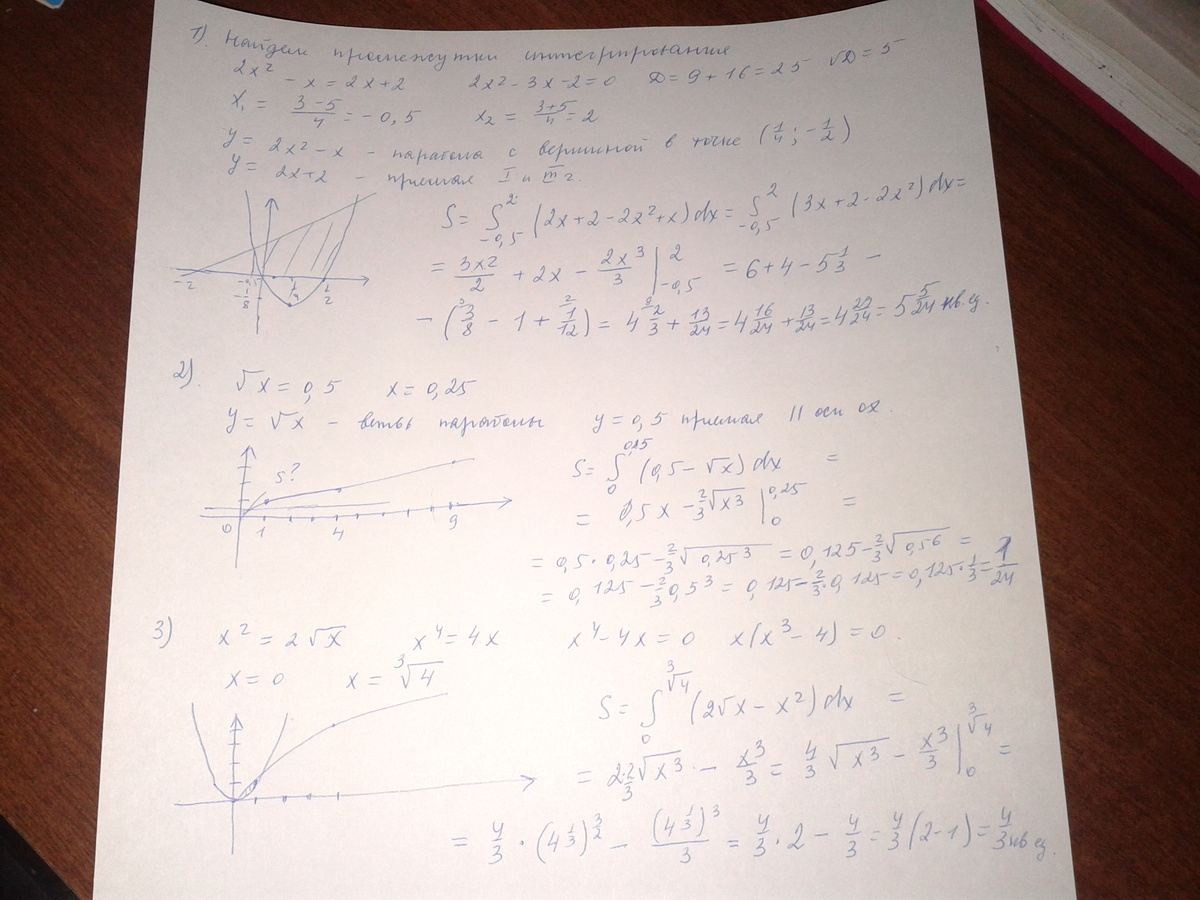 1). Найдем промежутки интегрирования
2x² - x = 2x+2    2x² - 3x - 2 = 0    D = 9 + 16 = 25    √D = 5
x₁ = (3-5)/4 = -0,5    x₂ = (3+5)/4 = 2
y = 2x² - x - парабола с вершиной в точке (1/4; -1/2)
y = 2x+2 - прямая I и III г.
S = ∫_{-0,5}^{2} (2x+2-2x²+x) dx = ∫_{-0,5}^{2} (3x+2-2x²) dx =
= 3x²/2 + 2x - 2x³/3 |_{-0,5}^{2} = 6+4-5 1/3 -
- (3/8 - 1 + 1/12) = 4 2/3 + 13/24 = 4 16/24 + 13/24 = 4 29/24 = 5 5/24 кв.ед.
-2 1/4 1/2
-1/8
2).    √x = 0,5    x = 0,25
y = √x - ветвь параболы    y = 0,5 прямая || оси ох.
S?
0 1 4 9
S = ∫_{0}^{0,25} (0,5-√x) dx =
= 0,5x - 2/3 √x³ |_{0}^{0,25} =
= 0,5·0,25 - 2/3 √0,25³ = 0,125 - 2/3 √0,5⁶ =
= 0,125 - 2/3 0,5³ = 0,125 - 2/3·0,125 = 0,125·1/3 = 1/24
3)    x² = 2√x    x⁴ = 4x    x⁴ - 4x = 0    x(x³ - 4) = 0.
x = 0    x = ³√4
S = ∫_{0}^{³√4} (2√x - x²) dx =
= 2·2/3 √x³ - x³/3 = 4/3 √x³ - x³/3 |_{0}^{³√4} =
= 4/3 · (4^{1/3})^{3/2} - (4^{1/3})³/3 = 4/3 · 2 - 4/3 = 4/3 (2-1) = 4/3 кв ед.